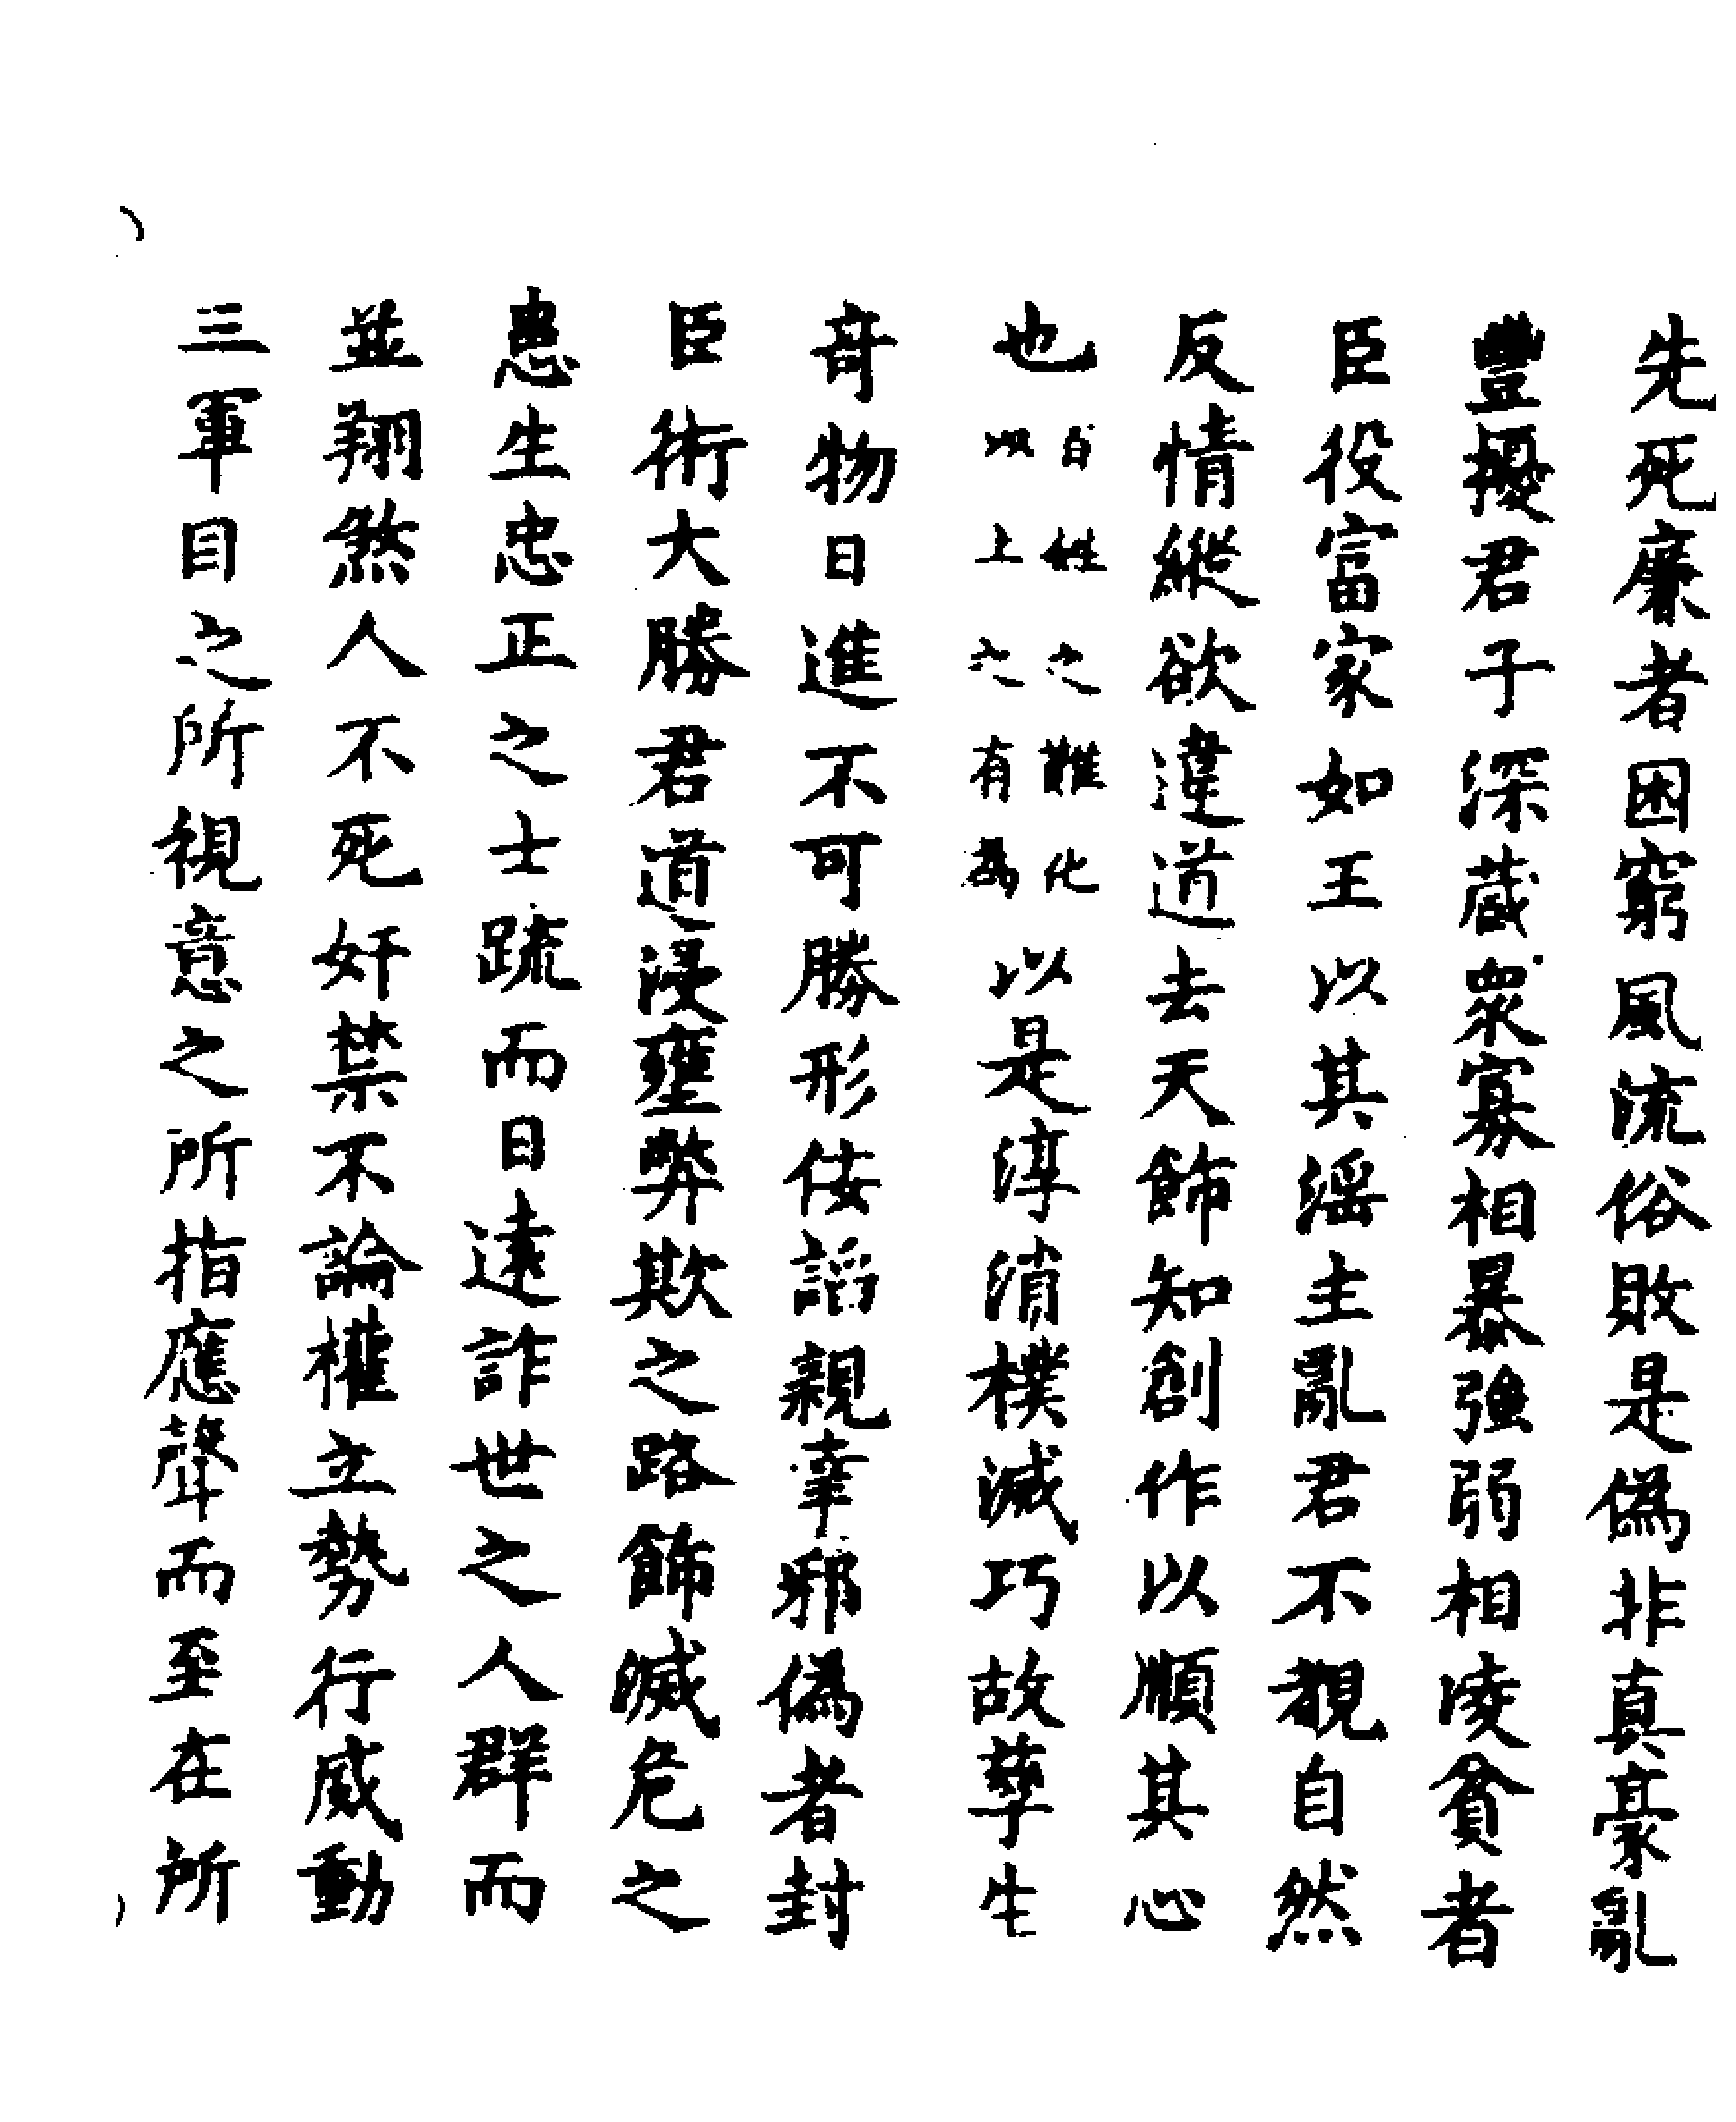 先死廉者困窮風流俗敗是偽非真豪亂
豐擾君子深蔵衆寡相暴強弱相凌貧者
臣役富家如王以其滛主亂君不覩自然
反情縱欲違道去天飾知創作以順其心
也百姓之難化以上之有為以是淳消樸滅巧故孳生
奇物日進不可勝形佞謟親幸邪偽者封
臣術大勝君道浸壅弊欺之路飾滅危之
患生忠正之士疏而日遠詐世之人群而
並翔煞人不死奸禁不論權立勢行威動
三軍目之所視意之所指應聲而至在所